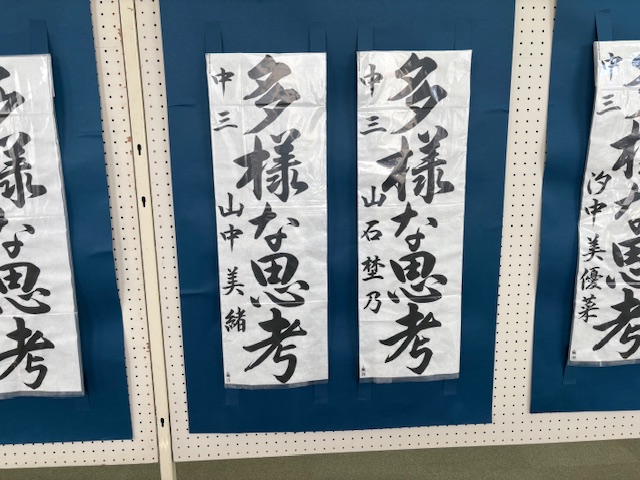 多様な思考
中三 汐中 美優菜
多様な思考
中三 山石 埜乃
多様な思考
中三 山中 美緒
様な思考